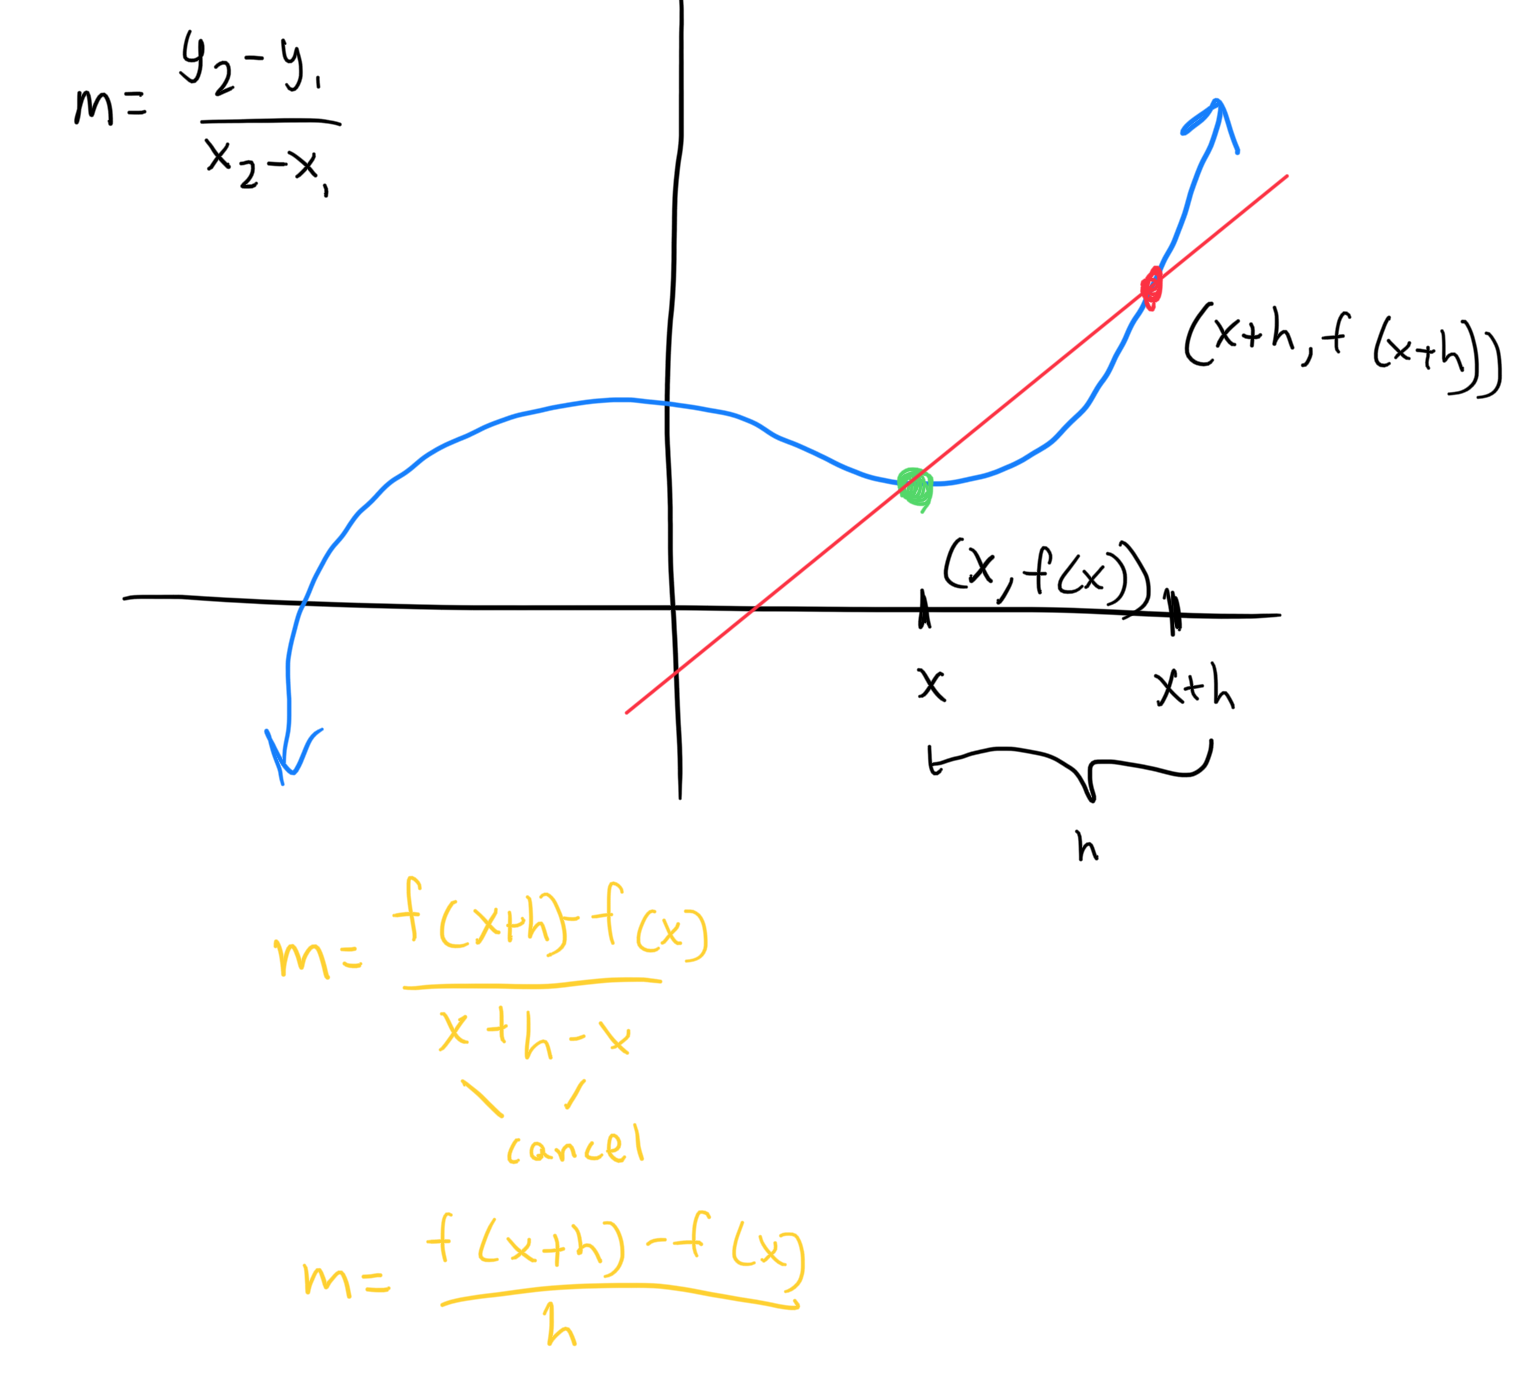 m = y₂ - y₁
x₂ - x₁
(x+h, f (x+h))
(x, f(x))
x
x+h
h
m = f(x+h) - f(x)
x + h - x
cancel
m = f(x+h) - f(x)
h